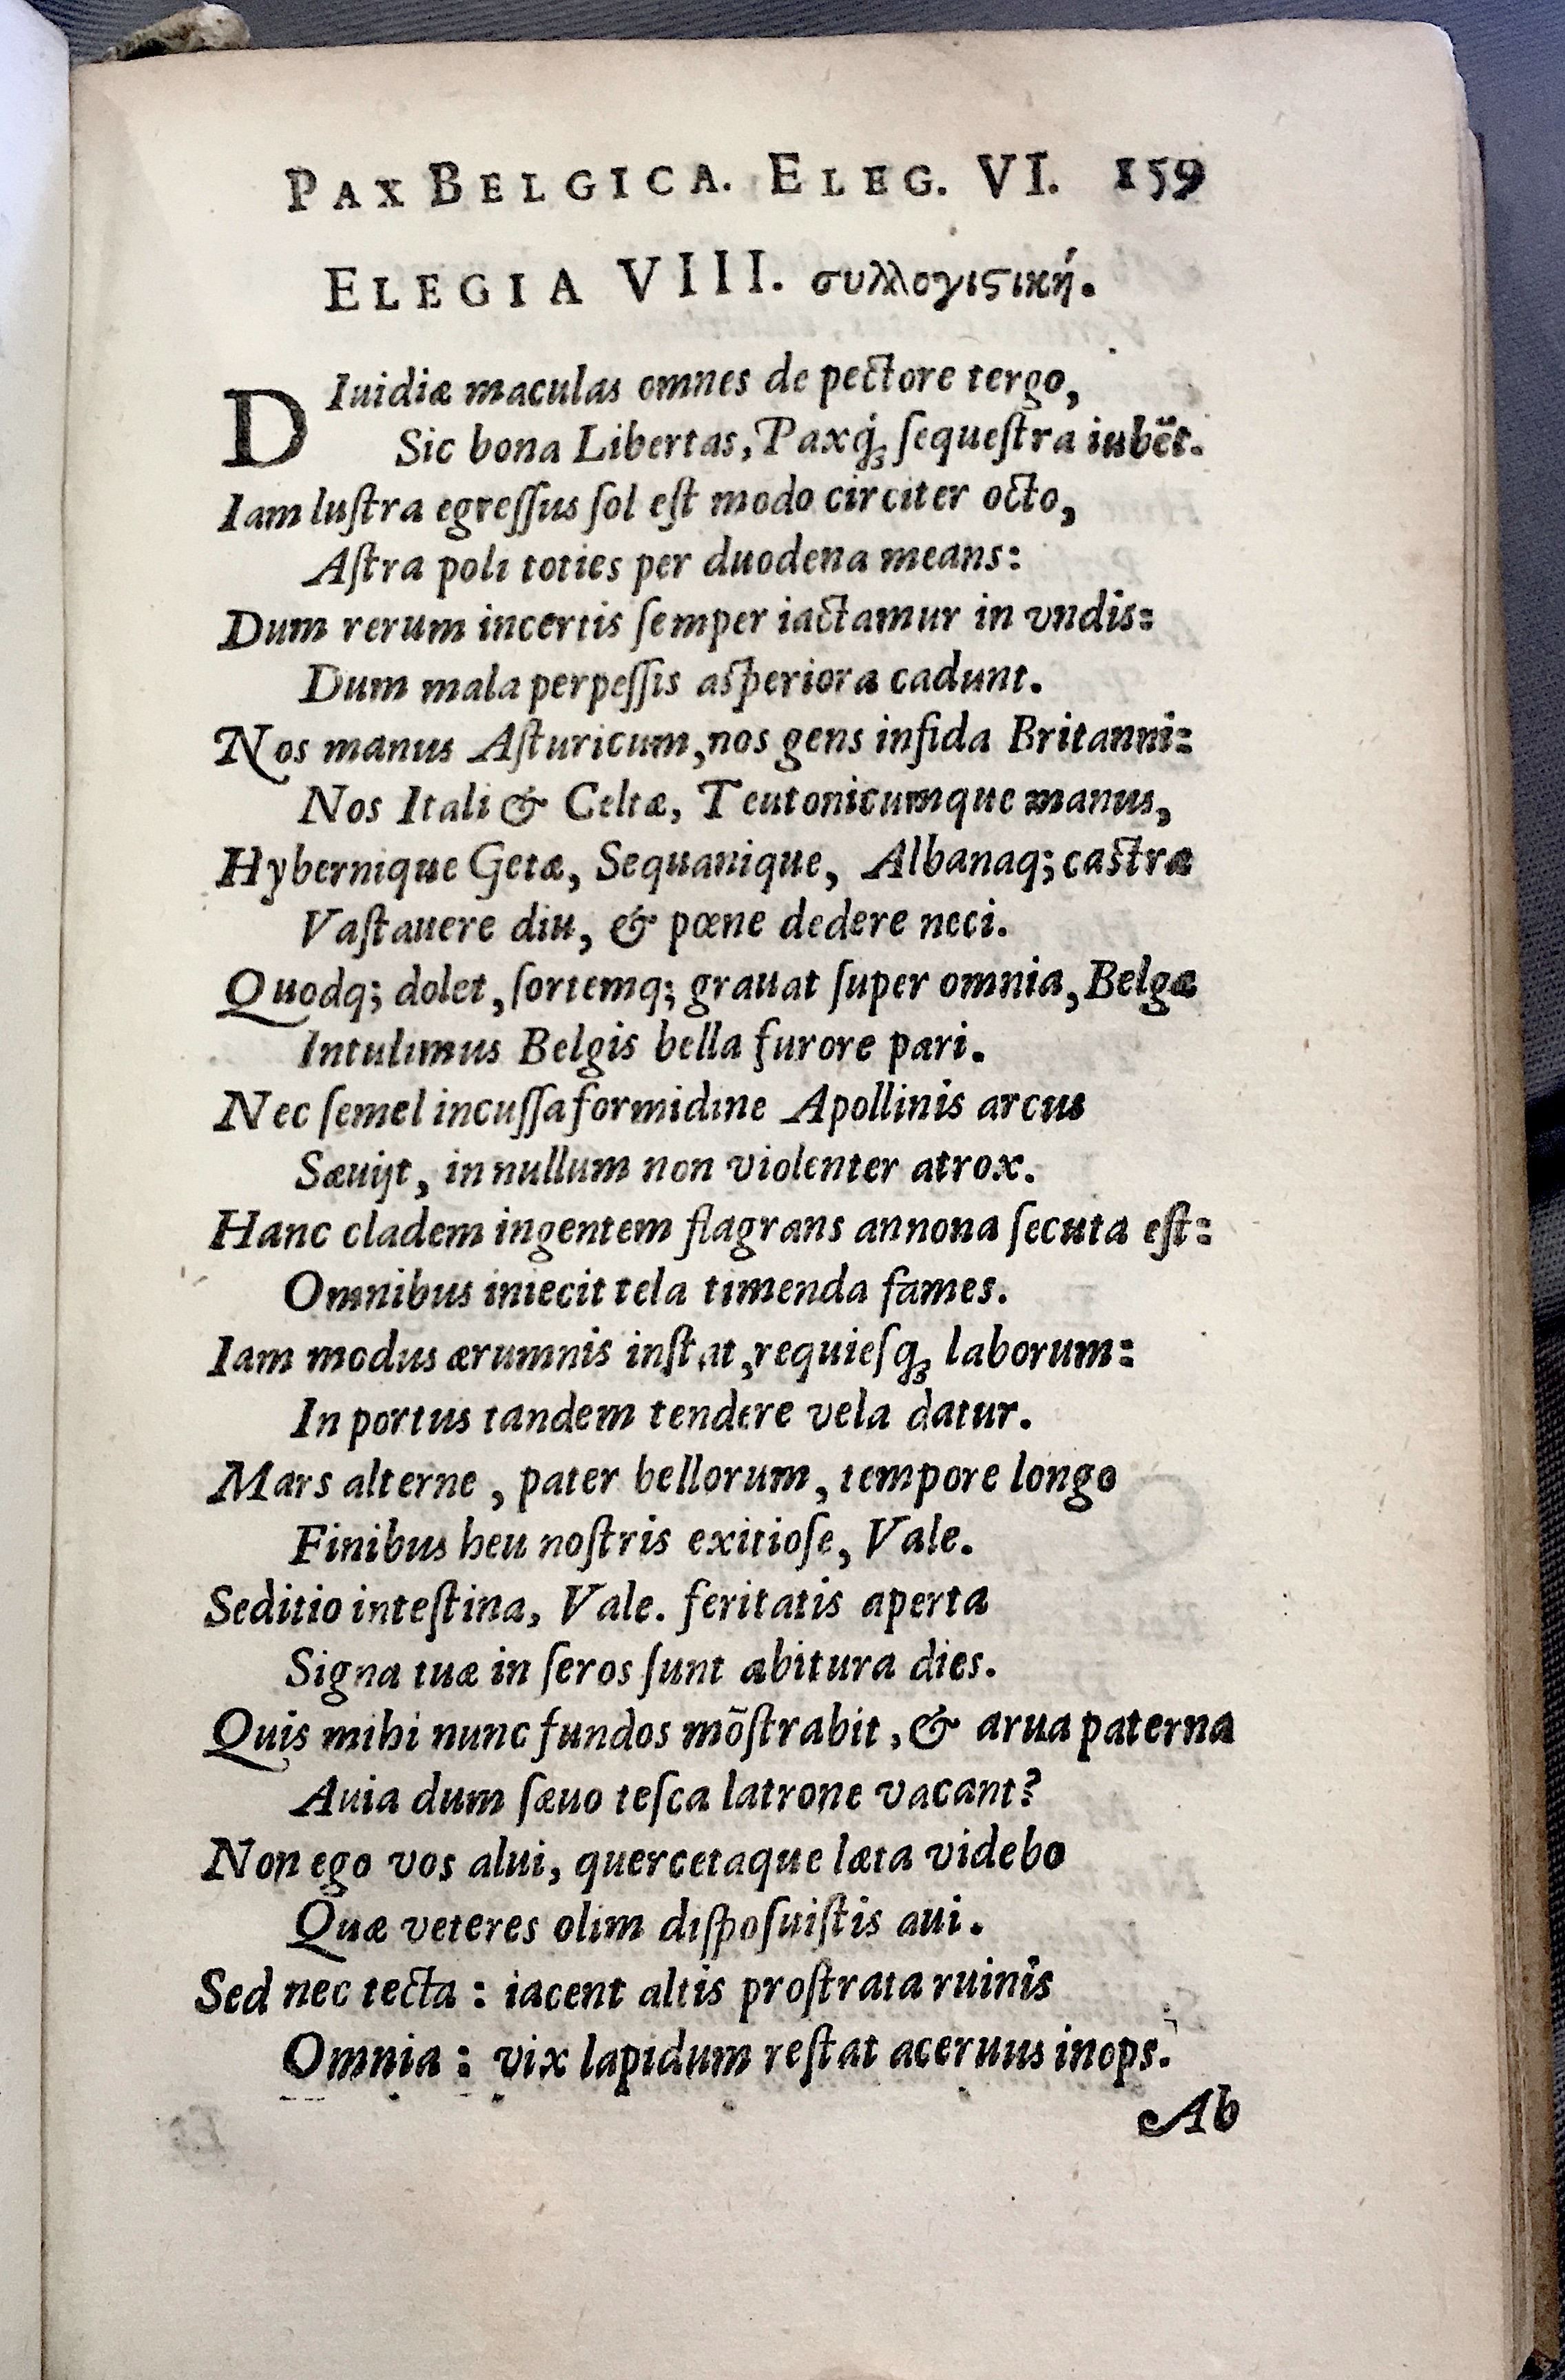 PAX BELGICA. ELEG. VI. 159
ELEGIA VIII. συλλογιϛική.
DIuidiæ maculas omnes de pectore tergo,
Sic bona Libertas, Paxq́ꝫ ſequeſtra iubẽt.
Iam luſtra egreſſus ſol eſt modo circiter octo,
Aſtra poli toties per duodena means:
Dum rerum incertis ſemper iactamur in vndis:
Dum mala perpeſſis aſperiora cadunt.
Nos manus Aſturicum, nos gens infida Britanni:
Nos Itali & Celtæ, Teutonicumque manus,
Hybernique Getæ, Sequanique, Albanaq; caſtra
Vaſtauere diu, & pœne dedere neci.
Quodq; dolet, ſortemq; grauat ſuper omnia, Belgæ
Intulimus Belgis bella furore pari.
Nec ſemel incuſſa formidine Apollinis arcus
Sæuijt, in nullum non violenter atrox.
Hanc cladem ingentem flagrans annona ſecuta eſt:
Omnibus iniecit tela timenda fames.
Iam modus ærumnis inſtat, requieſq́ꝫ laborum:
In portus tandem tendere vela datur.
Mars alterne, pater bellorum, tempore longo
Finibus heu noſtris exitioſe, Vale.
Seditio inteſtina, Vale. feritatis aperta
Signa tuæ in ſeros ſunt abitura dies.
Quis mihi nunc fundos mõſtrabit, & arua paterna
Auia dum ſæuo teſca latrone vacant?
Non ego vos alui, quercetaque læta videbo
Quæ veteres olim diſpoſuiſtis aui.
Sed nec tecta: iacent altis proſtrata ruinis
Omnia: vix lapidum reſtat aceruus inops.
Ab